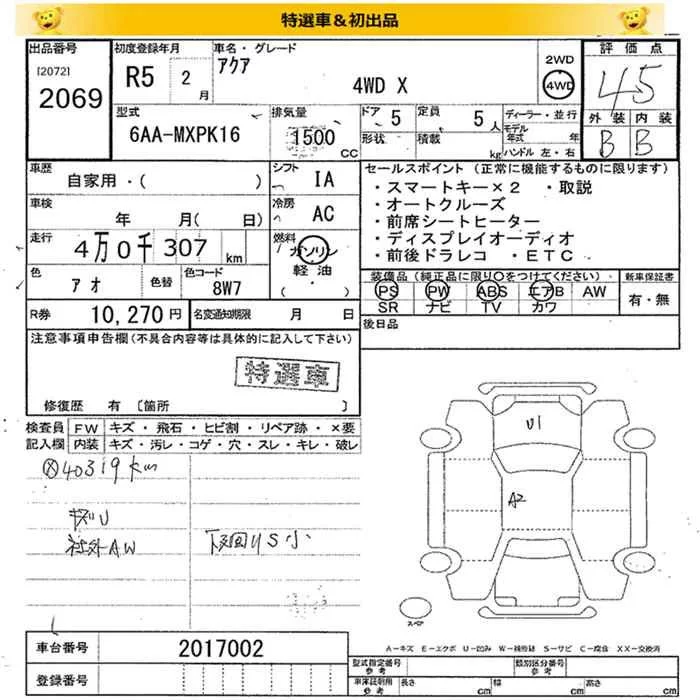 特選車＆初出品
出品番号 初度登録年月 車名・グレード 評価点
[2072] 2069 R5 2月 アクア 4WD X 2WD 4WD 45
型式 排気量 ドア 定員 ディーラー・並行 外装 内装
6AA-MXPK16 1500 CC 5 5人 モデル年式 年 B B
形状 積載 kg ハンドル 左・右
車歴 シフト セールスポイント (正常に機能するものに限ります)
自家用・( ) IA ・スマートキー×2 ・取説
車検 冷房 ・オートクルーズ
年 月( 日) AC ・前席シートヒーター
走行 燃料 ・ディスプレイオーディオ
4万0千307 km ガソリン ・前後ドラレコ ・ETC
色 色替 色コード 軽油・ 装備品(純正品に限り○をつけてください) 新車保証書
アオ 8W7 ( ・ ) PS PW ABS エアB AW 有・無
SR ナビ TV カワ
R券 10,270円 名変通知期限 月 日 後日品
注意事項申告欄(不具合内容等は具体的に記入して下さい)
特選車
修復歴 有 〔箇所 〕
検査員 FW キズ・飛石・ヒビ割・リペア跡・×要
記入欄 内装 キズ・汚レ・コゲ・穴・スレ・キレ・破レ
40319km U1
キズU A2
社外AW 下回りS小
スペア
車台番号 2017002 A－キズ E－エクボ U－凹み W－補修跡 S－サビ C－腐蝕 XX－交換済
登録番号 型式指定番号 参考 類別区分番号 参考
車庫証明用 参考 長さ cm 幅 cm 高さ cm